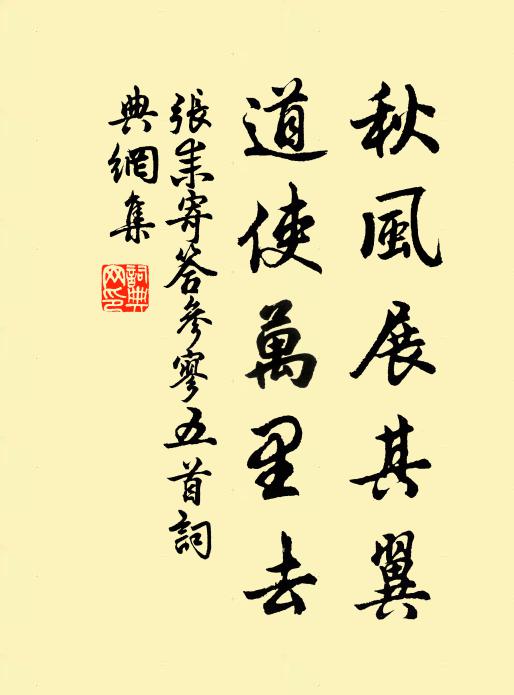 秋風展其翼
道使萬里去
張耒寄答參寥五首詞
典網集
詞典網印